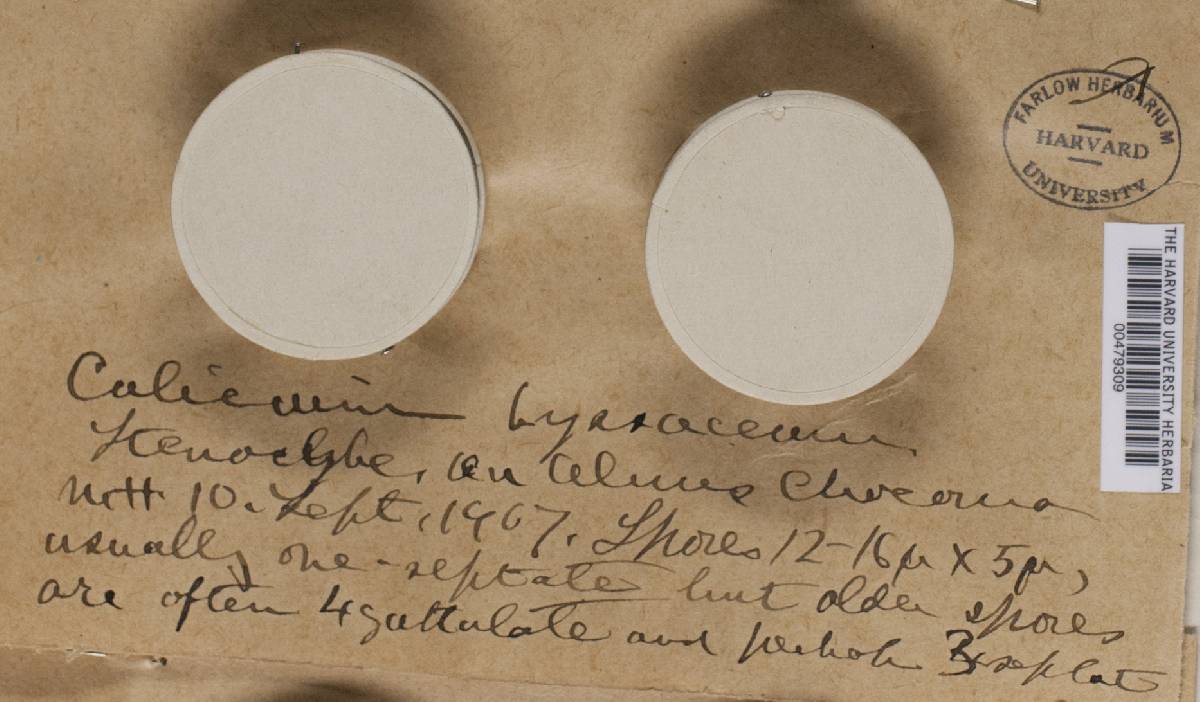 FARLOW HERBARIUM
HARVARD
UNIVERSITY
THE HARVARD UNIVERSITY HERBARIA
00479309
Calicium byssaceum
on Alnus Chocorua
N.H. 10. Sept, 1907. Spores 12-16µ x 5µ,
usually one-septate but older spores
are often 4 guttulate and perhaps 3 septate